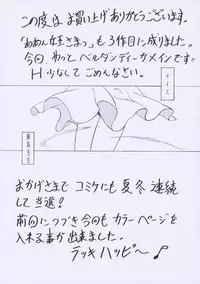 この度は お買い上げありがとうございます。
「ああん女王さまっ」も 3作目に成りました。
今回 わって ベルダンディーがメインです
H 少なくて ごめんなさい。
ナイス
おかげさまで コミケにも 夏冬 連続
して 当選!
前回につづき 今回も カラーページを
入れる事が 出来ました。
ラッキーハッピ〜♪